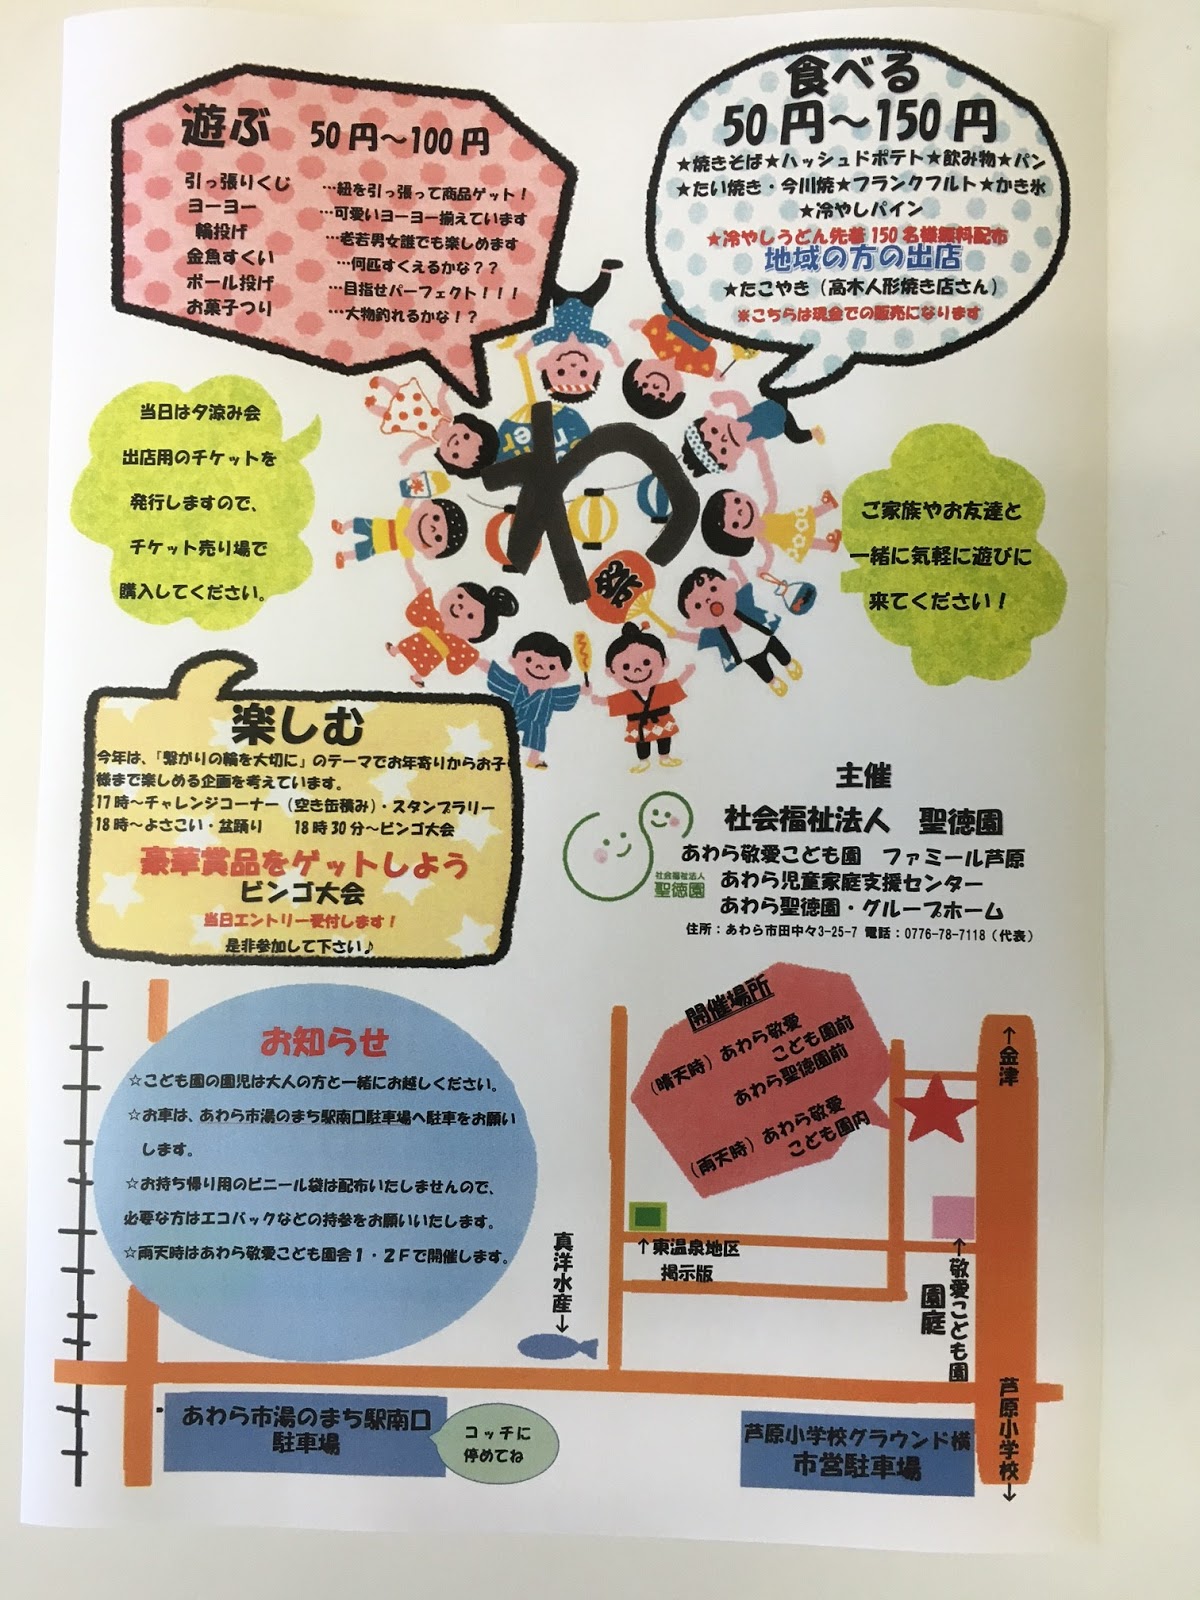 遊ぶ 50円～100円
引っ張りくじ …紐を引っ張って商品ゲット！
ヨーヨー …可愛いヨーヨー揃えています
輪投げ …老若男女誰でも楽しめます
金魚すくい …何匹すくえるかな？？
ボール投げ …目指せパーフェクト！！！
お菓子つり …大物釣れるかな！？
食べる
50円～150円
★焼きそば★ハッシュドポテト★飲み物★パン
★たい焼き・今川焼★フランクフルト★かき氷
★冷やしパイン
★冷やしうどん先着150名様無料配布
地域の方の出店
★たこやき（高木人形焼き店さん）
※こちらは現金での販売になります
当日は夕涼み会
出店用のチケットを
発行しますので、
チケット売り場で
購入してください。
わ
祭
ご家族やお友達と
一緒に気軽に遊びに
来てください！
楽しむ
今年は、「繋がりの輪を大切に」のテーマでお年寄りからお子
様まで楽しめる企画を考えています。
17時～チャレンジコーナー（空き缶積み）・スタンプラリー
18時～よさこい・盆踊り 18時30分～ビンゴ大会
豪華賞品をゲットしよう
ビンゴ大会
当日エントリー受付します！
是非参加して下さい♪
主催
社会福祉法人 聖徳園
あわら敬愛こども園 ファミール芦原
あわら児童家庭支援センター
あわら聖徳園・グループホーム
住所：あわら市田中々3-25-7 電話：0776-78-7118（代表）
社会福祉法人
聖徳園
お知らせ
☆こども園の園児は大人の方と一緒にお越しください。
☆お車は、あわら市湯のまち駅南口駐車場へ駐車をお願い
します。
☆お持ち帰り用のビニール袋は配布いたしませんので、
必要な方はエコバックなどの持参をお願いいたします。
☆雨天時はあわら敬愛こども園舎１・２Ｆで開催します。
開催場所
（晴天時）あわら敬愛
こども園前
あわら聖徳園前
（雨天時）あわら敬愛
こども園内
↑金津
↑東温泉地区
掲示版
真洋水産↓
↑敬愛こども園
園庭
芦原小学校↓
あわら市湯のまち駅南口
駐車場
コッチに
停めてね
芦原小学校グラウンド横
市営駐車場